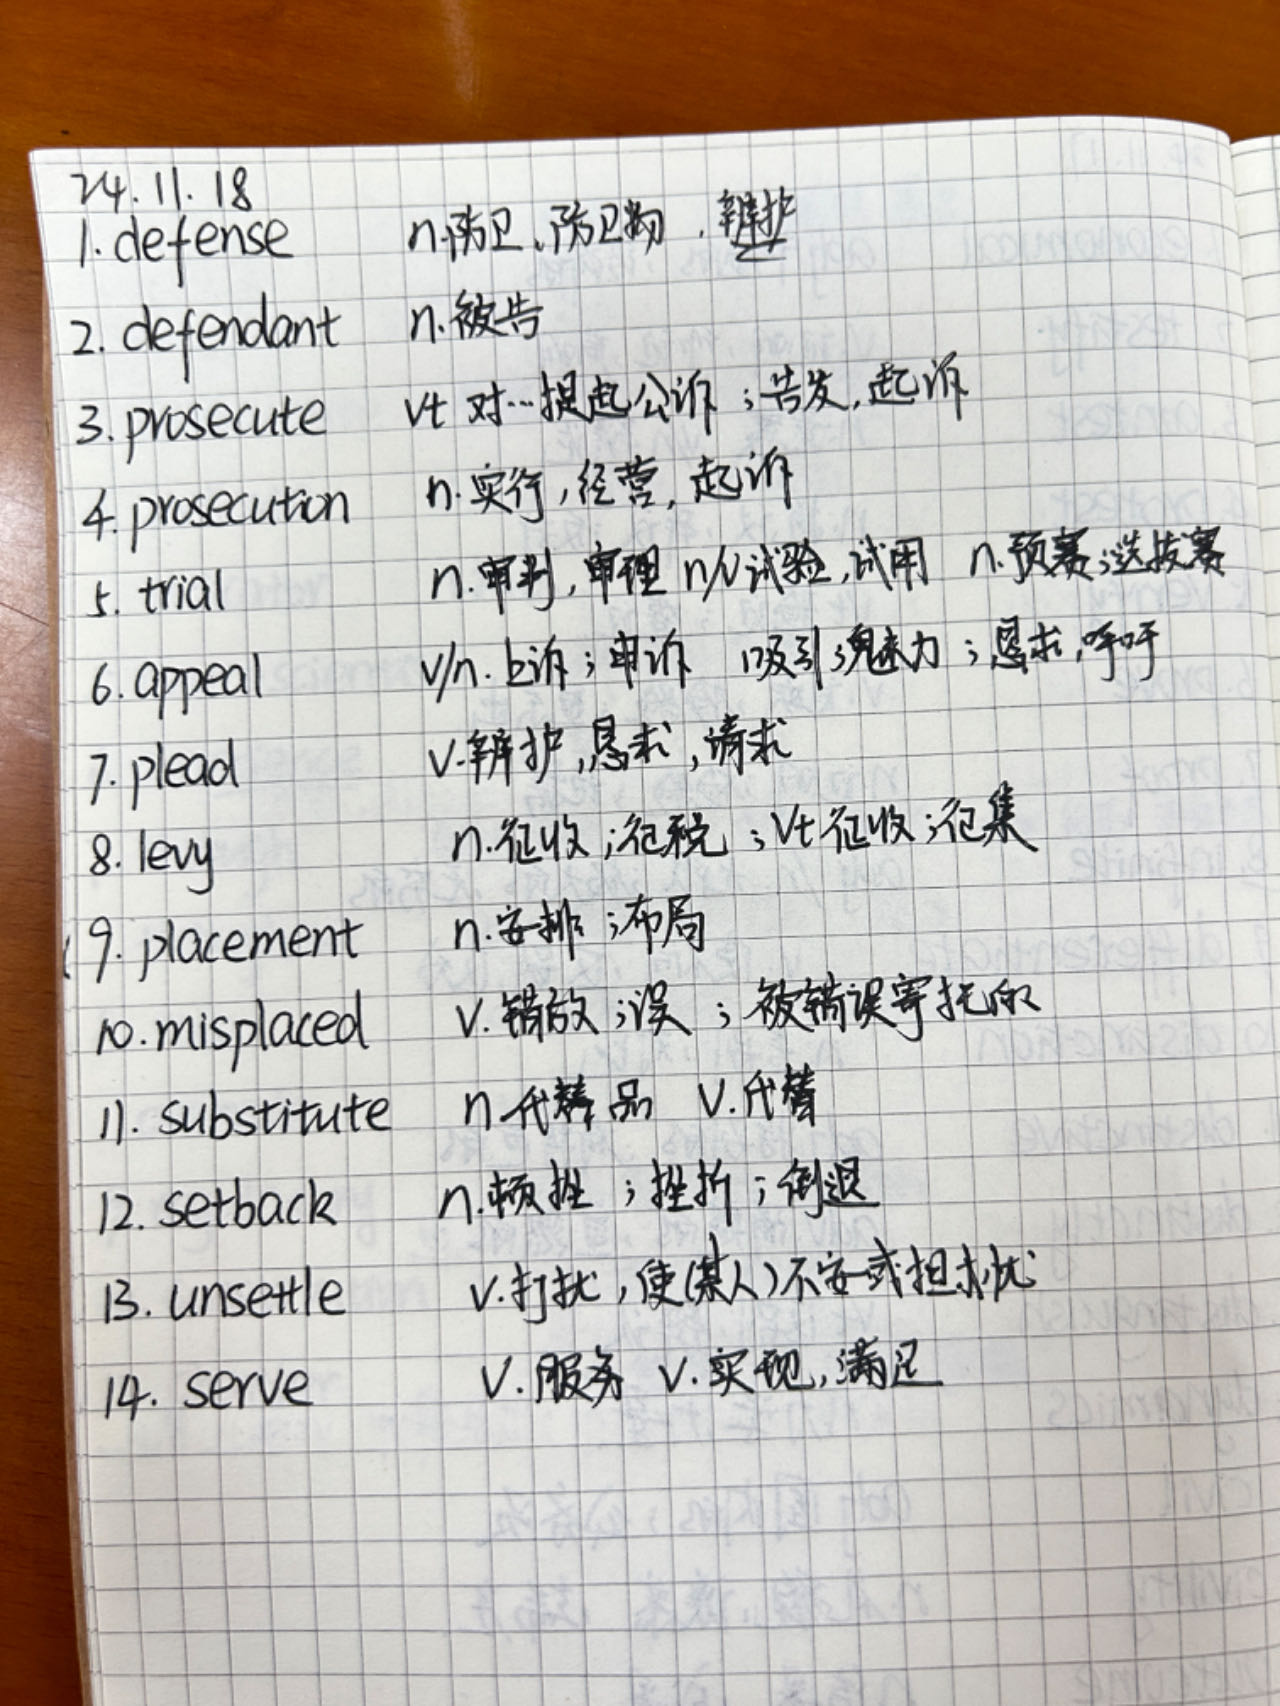 24.11.18
1. defense n.防卫、防卫物,辩护
2. defendant n.被告
3. prosecute vt 对…提起公诉;告发,起诉
4. prosecution n.实行,经营,起诉
5. trial n.审判,审理 n/v试验,试用 n.预赛;选拔赛
6. appeal v/n.上诉;申诉 吸引;魅力;恳求,呼吁
7. plead v.辩护,恳求,请求
8. levy n.征收;征税;vt征收;征集
9. placement n.安排;布局
10. misplaced v.错放;误;被错误寄托的
11. substitute n.代替品 v.代替
12. setback n.顿挫;挫折;倒退
13. unsettle v.打扰,使(某人)不安或担忧
14. serve v.服务 v.实现,满足